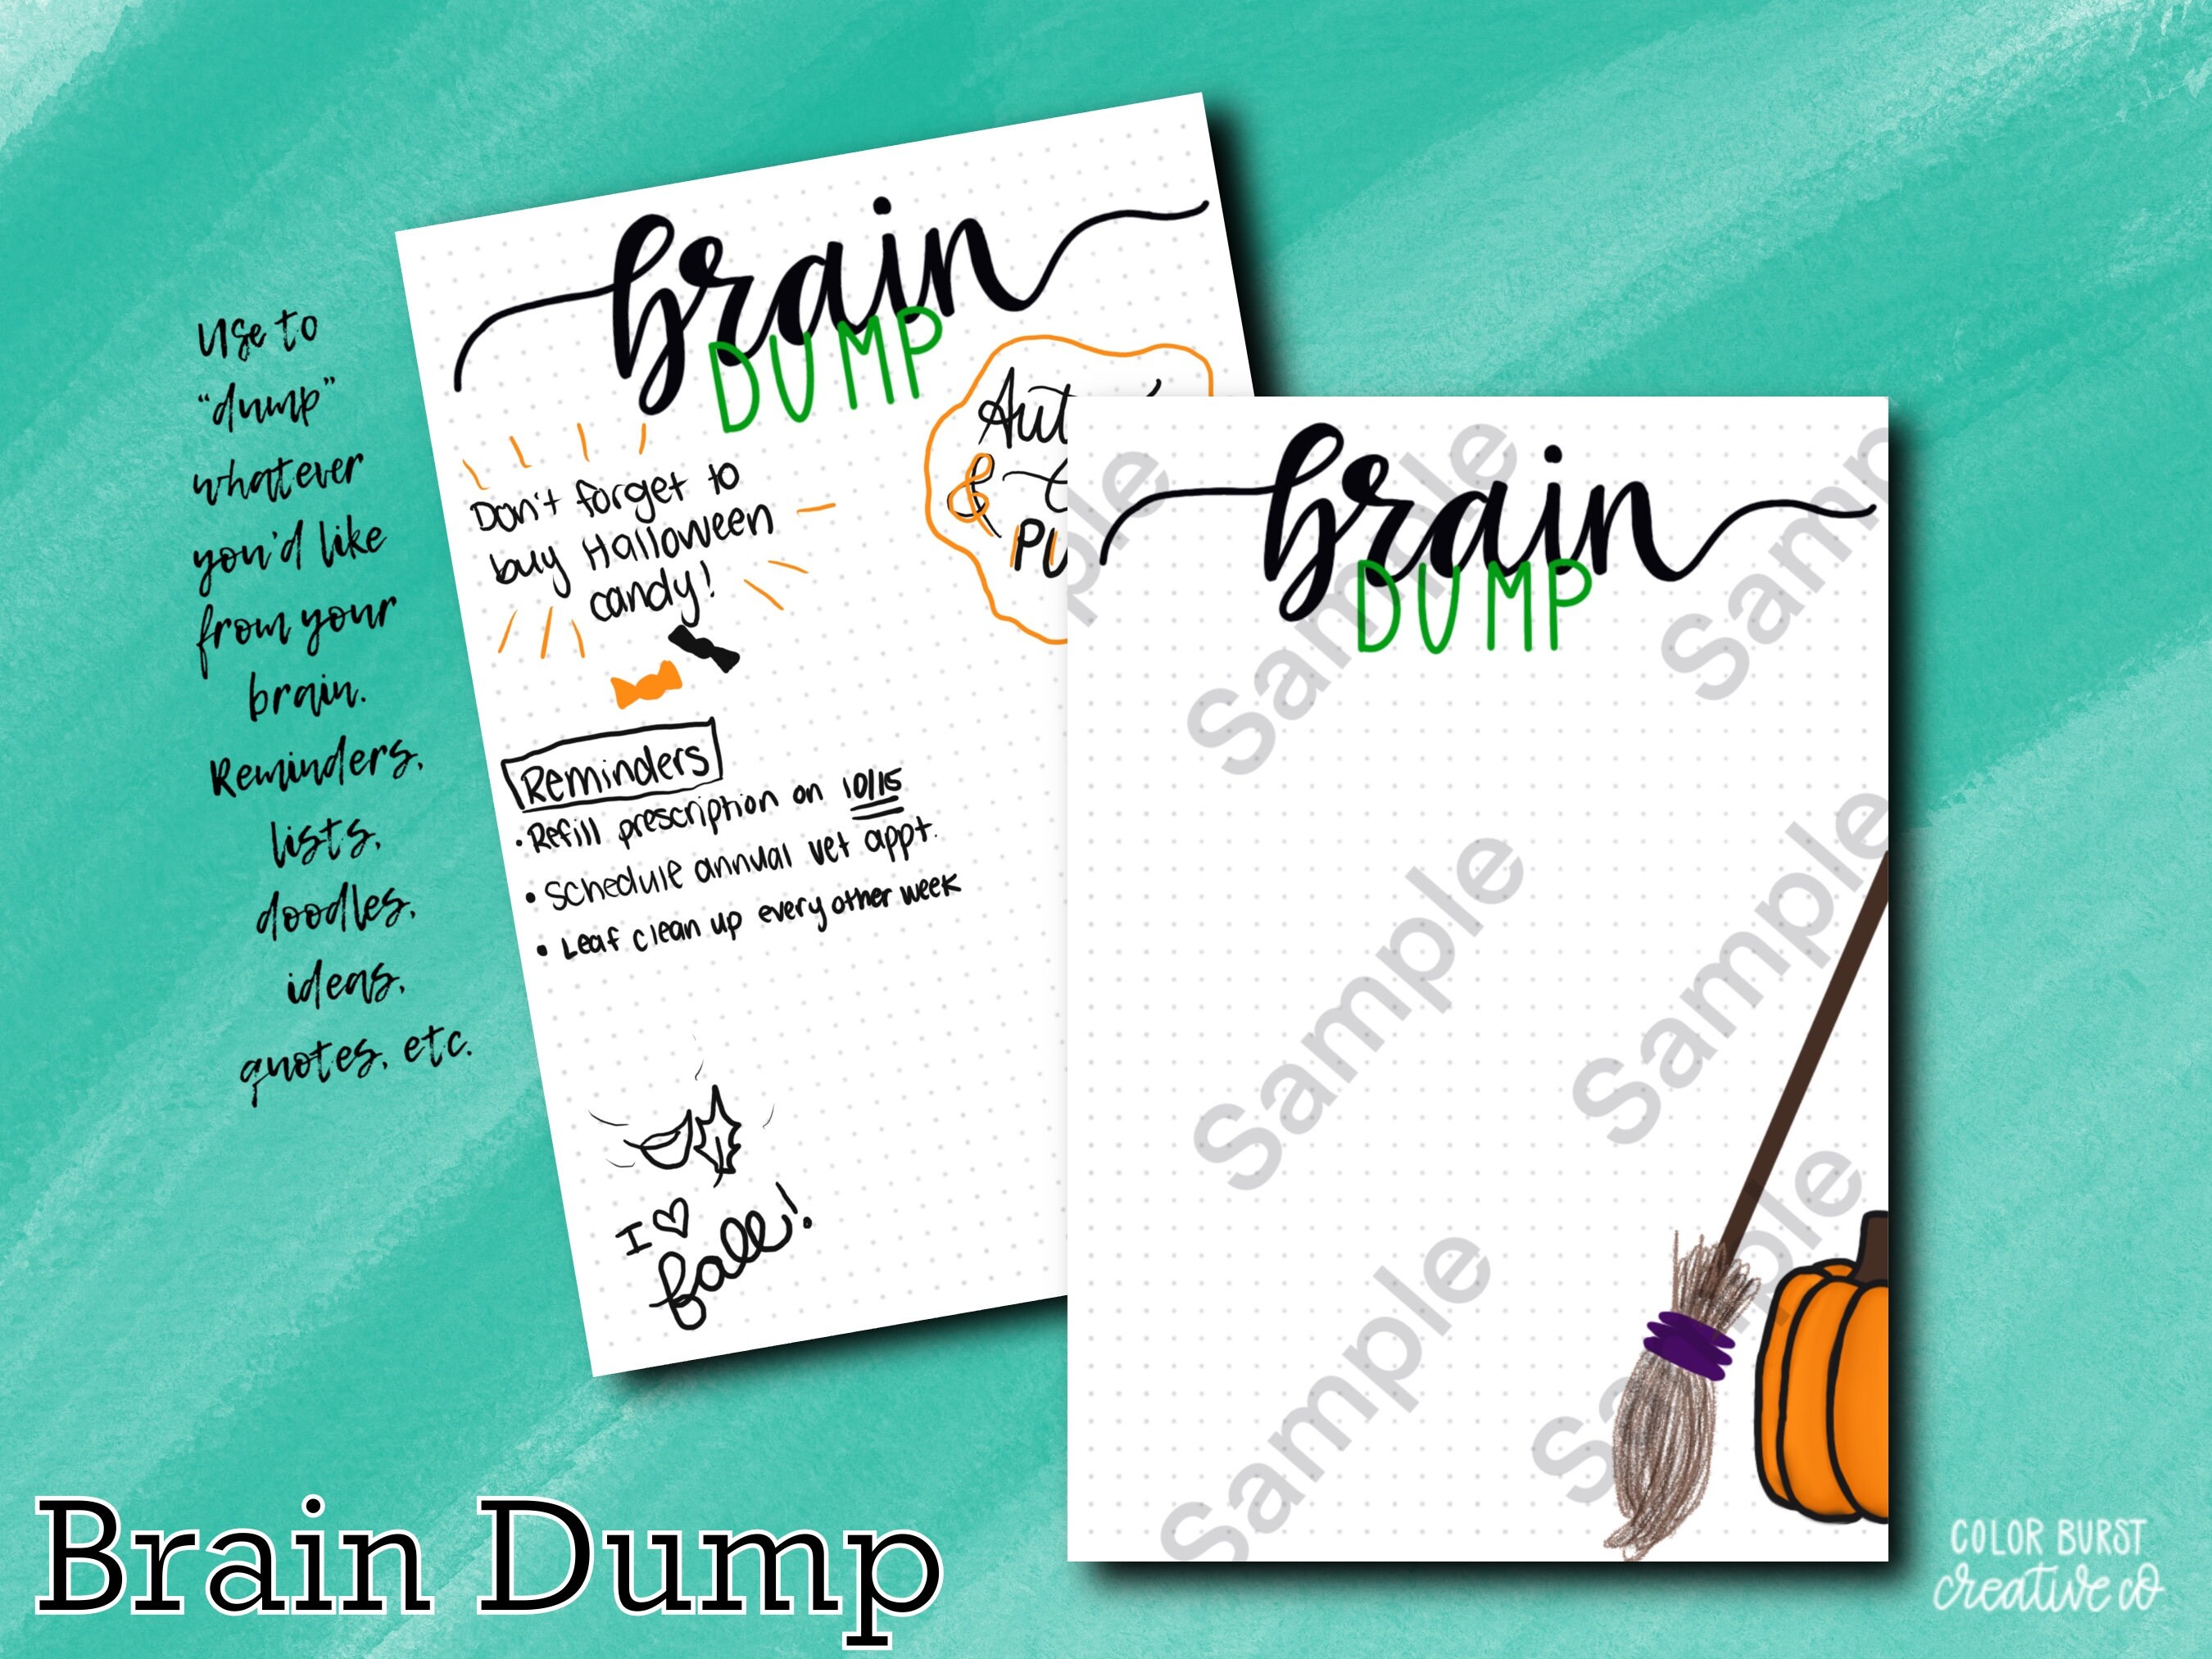 Use to
“dump”
whatever
you'd like
from your
brain.
Reminders,
lists,
doodles,
ideas,
quotes, etc.
brain
DUMP
Don't forget to
buy Halloween
candy!
&
Reminders
• Refill prescription on 10/15
• Schedule annual vet appt.
• Leaf clean up every other week
I ♡
fall!
brain
DUMP
Sample
Sample
Sample
Sample
Sample
Brain Dump
COLOR BURST
creative co